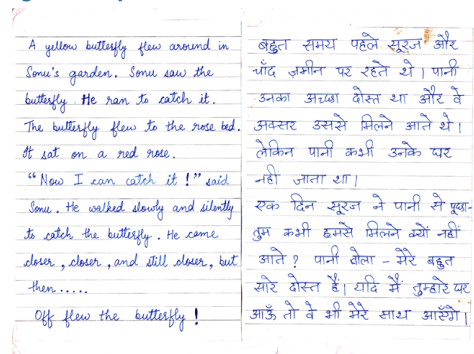 A yellow butterfly flew around in
Sonu's garden. Sonu saw the
butterfly. He ran to catch it.
The butterfly flew to the rose bed.
It sat on a red rose.
"Now I can catch it!" said
Sonu. He walked slowly and silently
to catch the butterfly. He came
closer, closer, and still closer, but
then.....
Off flew the butterfly!
बहुत समय पहले सूरज और
चाँद ज़मीन पर रहते थे। पानी
उनका अच्छा दोस्त था और वे
अक्सर उससे मिलने आते थे।
लेकिन पानी कभी उनके घर
नहीं जाता था।
एक दिन सूरज ने पानी से पूछा-
तुम कभी हमसे मिलने क्यों नहीं
आते? पानी बोला - मेरे बहुत
सारे दोस्त हैं। यदि मैं तुम्हारे घर
आऊँ तो वे भी मेरे साथ आएँगे।